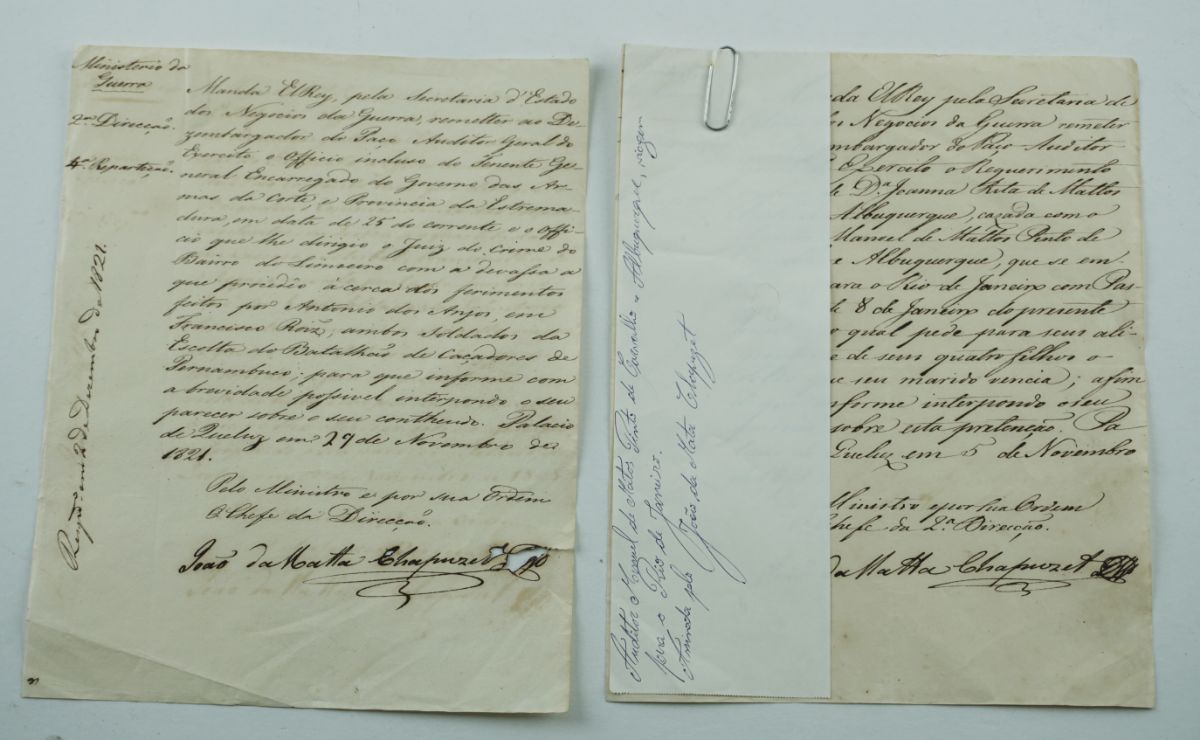 Ministerio da
Guerra
2ª Direcção.
4ª Repartição.
Manda ElRey, pela Secretaria d'Estado
dos Negocios da Guerra, remetter ao De-
zembargador do Paço Auditor Geral do
Exercito o Officio incluso do Tenente Ge-
neral Encarregado do Governo das Ar-
mas da Corte, e Provincia da Estrema-
dura, em data de 25 do corrente e o Offi-
cio que lhe dirigio o Juiz do Crime do
Bairro do Limoeiro com a devassa a
que procedêo à cerca dos ferimentos
feitos por Antonio dos Anjos, em
Francisco Roiz, ambos Soldados da
Escolta do Batalhaõ de Caçadores de
Pernambuco; para que informe com
a brevidade possivel interpondo o seu
parecer sobre o seu contheudo. Palacio
de Queluz em 29 de Novembro de
1821.
Pelo Ministro e por sua Ordem
O Chefe da Direcção.
João da Matta Chapuzet
em 2 de Dezembro de 1821.
Auditor Manuel de Matos Pinto de Carvalho e Albuquerque, viagem
para o Rio de Janeiro.
Assinada pelo João da Mata Chapuzet
da ElRey pela Secretaria de
os Negocios da Guerra remeter
mbargador do Paço Auditor
Exercito o Requerimento
de D.ª Joanna Rita de Mattos
Albuquerque, cazada com o
Manuel de Mattos Pinto de
e Albuquerque, que se em-
ara o Rio de Janeiro com Pas-
de 8 de Janeiro do presente
o qual pede para seus ali-
e de seus quatro filhos o
ue seu marido vencia; afim
nforme interpondo o seu
sobre esta pretenção. Pa
Queluz em 5 de Novembro
Ministro e por sua Ordem
Chefe da 2.ª Direcção.
da Matta Chapuzet